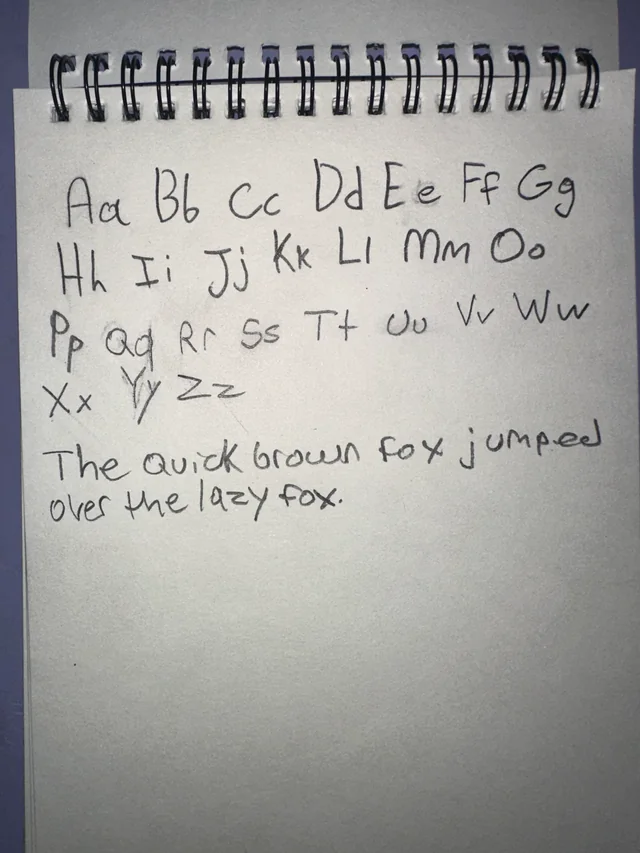 Aa Bb Cc Dd Ee Ff Gg
Hh Ii Jj Kk Ll Mm Oo
Pp Qq Rr Ss Tt Uu Vv Ww
Xx Yy Zz
The quick brown fox jumped
over the lazy fox.